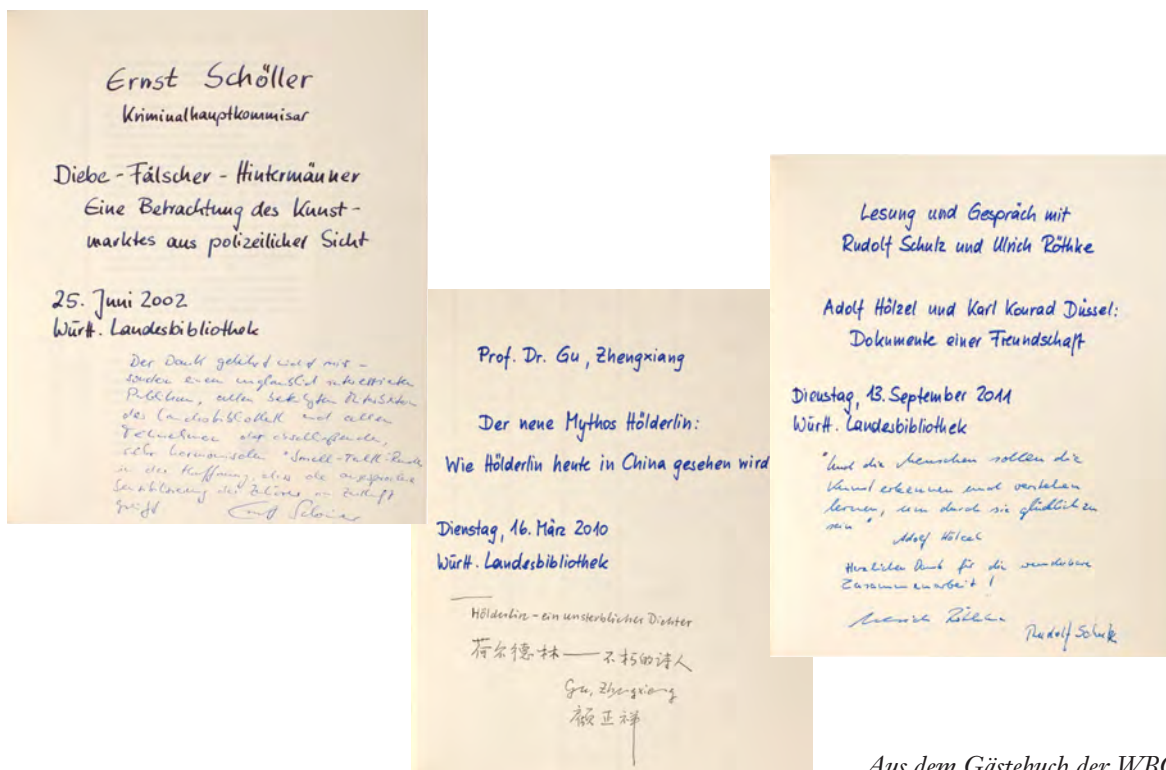 Ernst Schöller
Kriminalhauptkommisar
Diebe - Fälscher - Hintermänner
Eine Betrachtung des Kunst-
marktes aus polizeilicher Sicht
25. Juni 2002
Württ. Landesbibliothek
Der Dank gebührt nicht mir -
sondern einem unglaublich interessierten
Publikum, allen
der Landesbibliothek und allen
Teilnehmern der anschließenden,
sehr harmonischen "Small-Talk-Runde
in der Hoffnung, dass die ausgesprochene
Sensibilisierung der Zuhörer in Zukunft
Prof. Dr. Gu, Zhengxiang
Der neue Mythos Hölderlin:
Wie Hölderlin heute in China gesehen wird
Dienstag, 16. März 2010
Württ. Landesbibliothek
Hölderlin - ein unsterblicher Dichter
荷尔德林——不朽的诗人
Gu, Zhengxiang
顾正祥
Lesung und Gespräch mit
Rudolf Schulz und Ulrich Röthke
Adolf Hölzel und Karl Konrad Düssel:
Dokumente einer Freundschaft
Dienstag, 13. September 2011
Württ. Landesbibliothek
"Und die Menschen sollen die
Kunst erkennen und verstehen
lernen, um durch sie glücklich zu
sein"
Adolf Hölzel
Herzlichen Dank für die wunderbare
Zusammenarbeit!
Ulrich Röthke
Rudolf Schulz
Aus dem Gästebuch der WBG